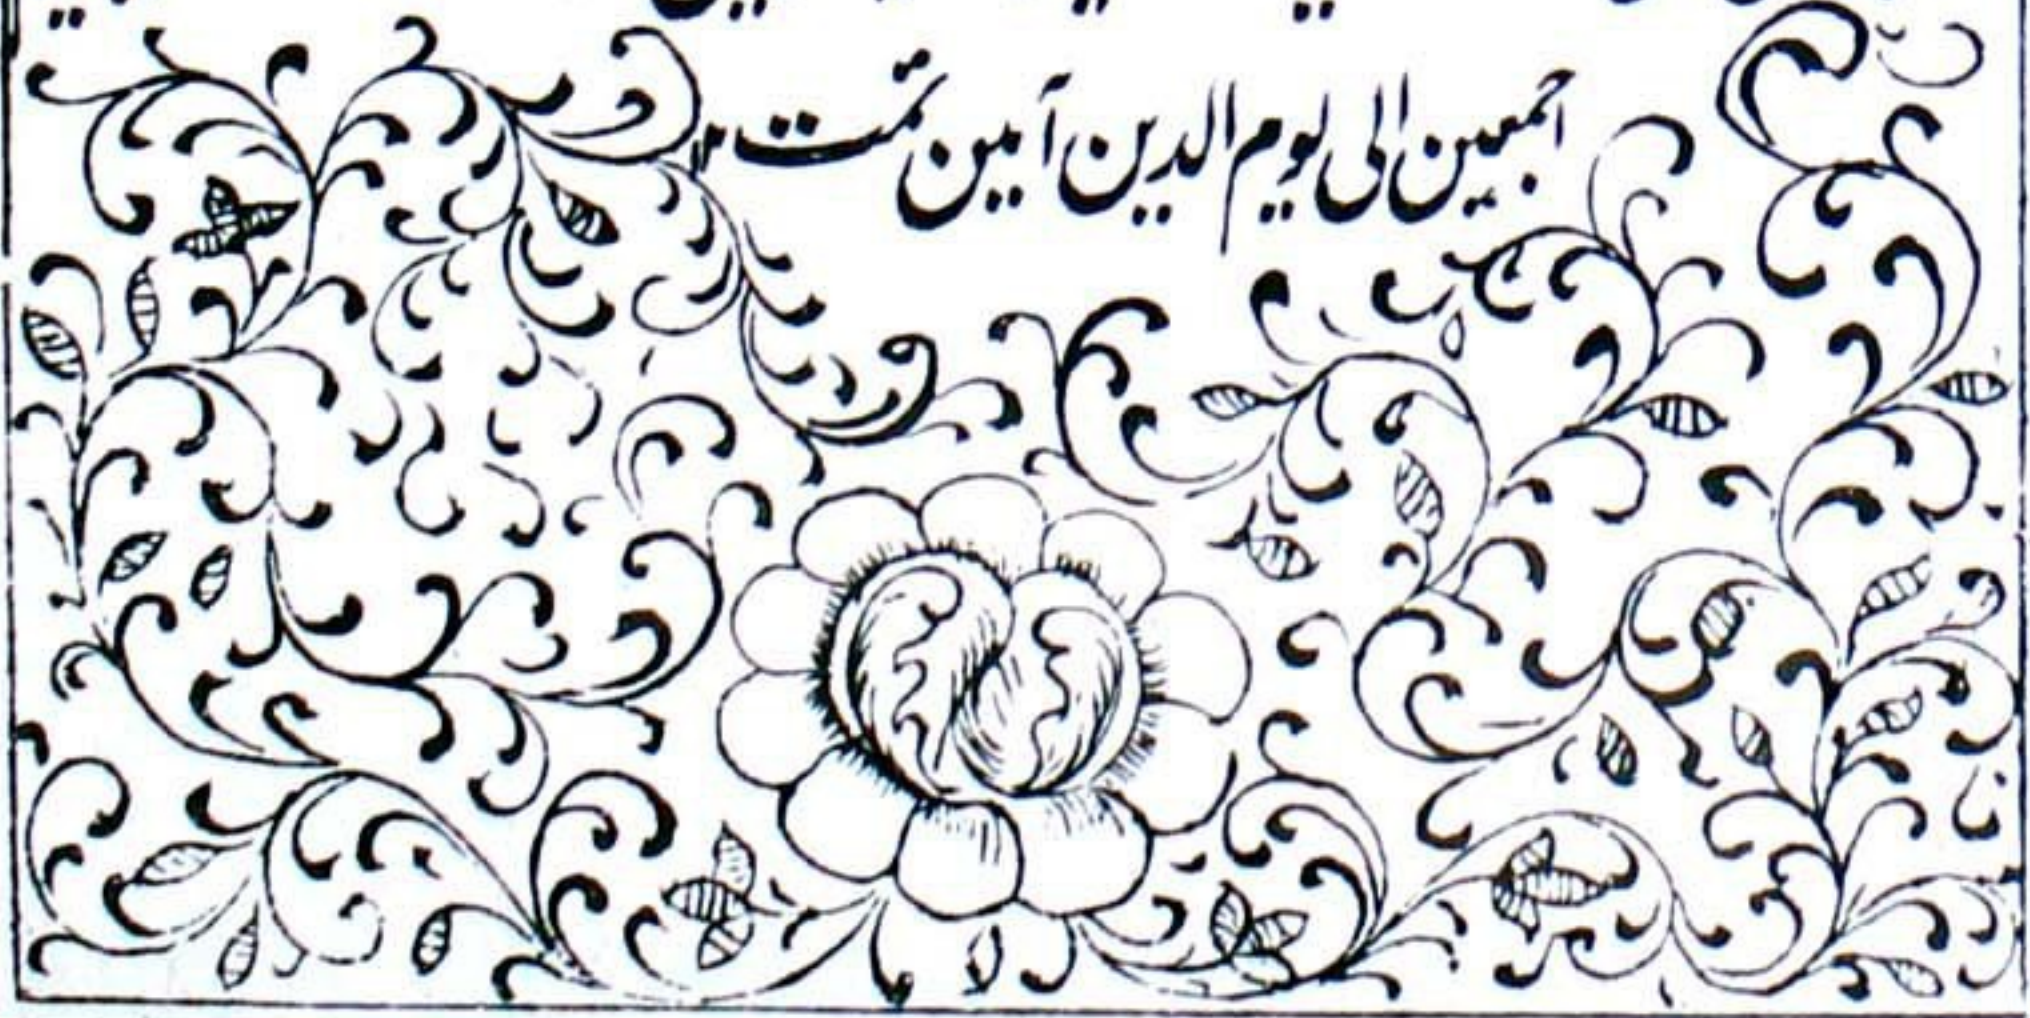 اجمعین الی یوم الدین آمین تمت